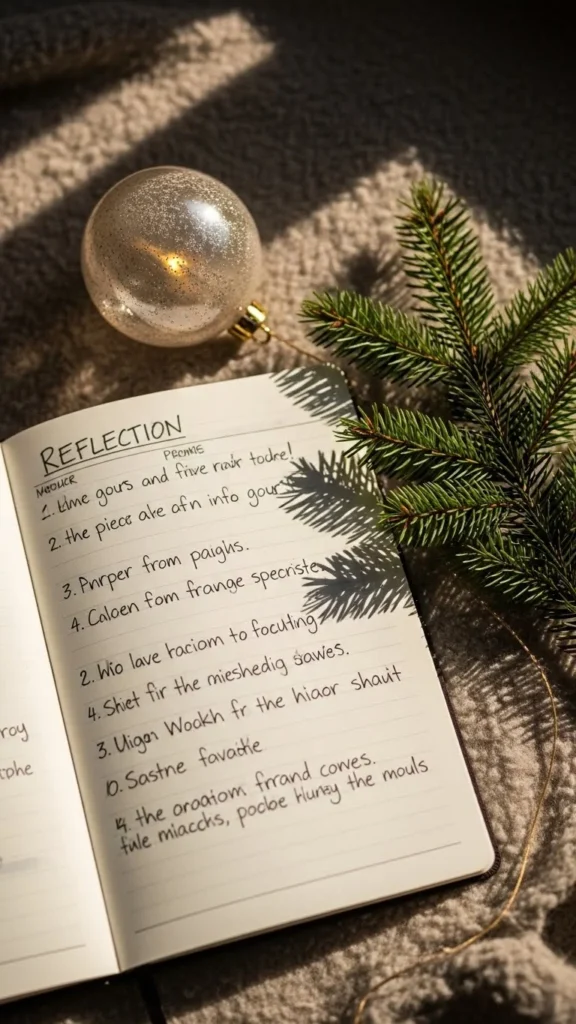 REFLECTION
PROME
1. and five todre!
2. the piece ale afn info gour
3. Pnrper from paighs.
4. Caloen fom frange specriste
2. Wio lave raciom to focuting
4. Shiet fir the mieshedig sawes.
3. Uigan Wookh fr the hiaor shauit
10. Sastne favaitle
14. the oroatom frrand conves.
fule miacchs, poobe the mouls
roy
tphe